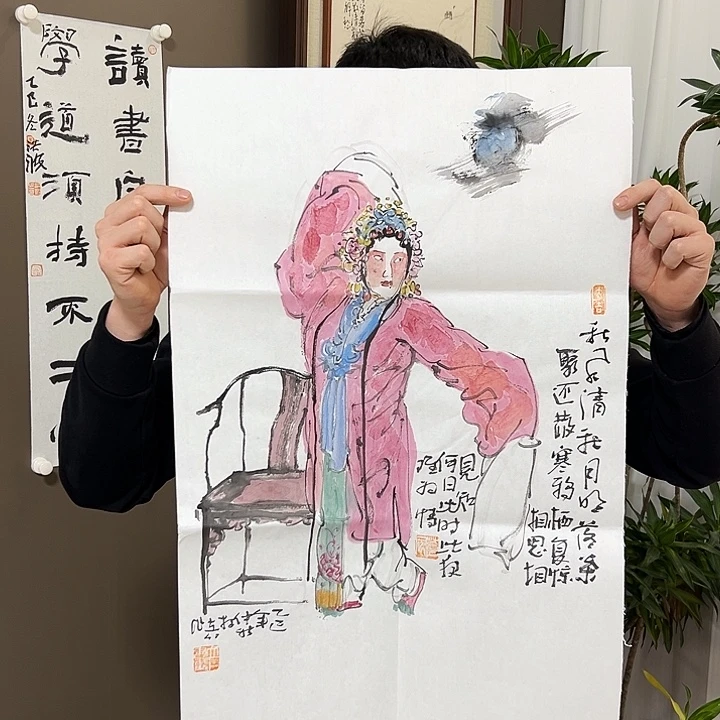 秋风清秋月明落葉
聚还散寒鸦栖复惊
相思相
見知
何日此时此夜
难为情
乙巳
讀書
學道須持不二
乙巳冬